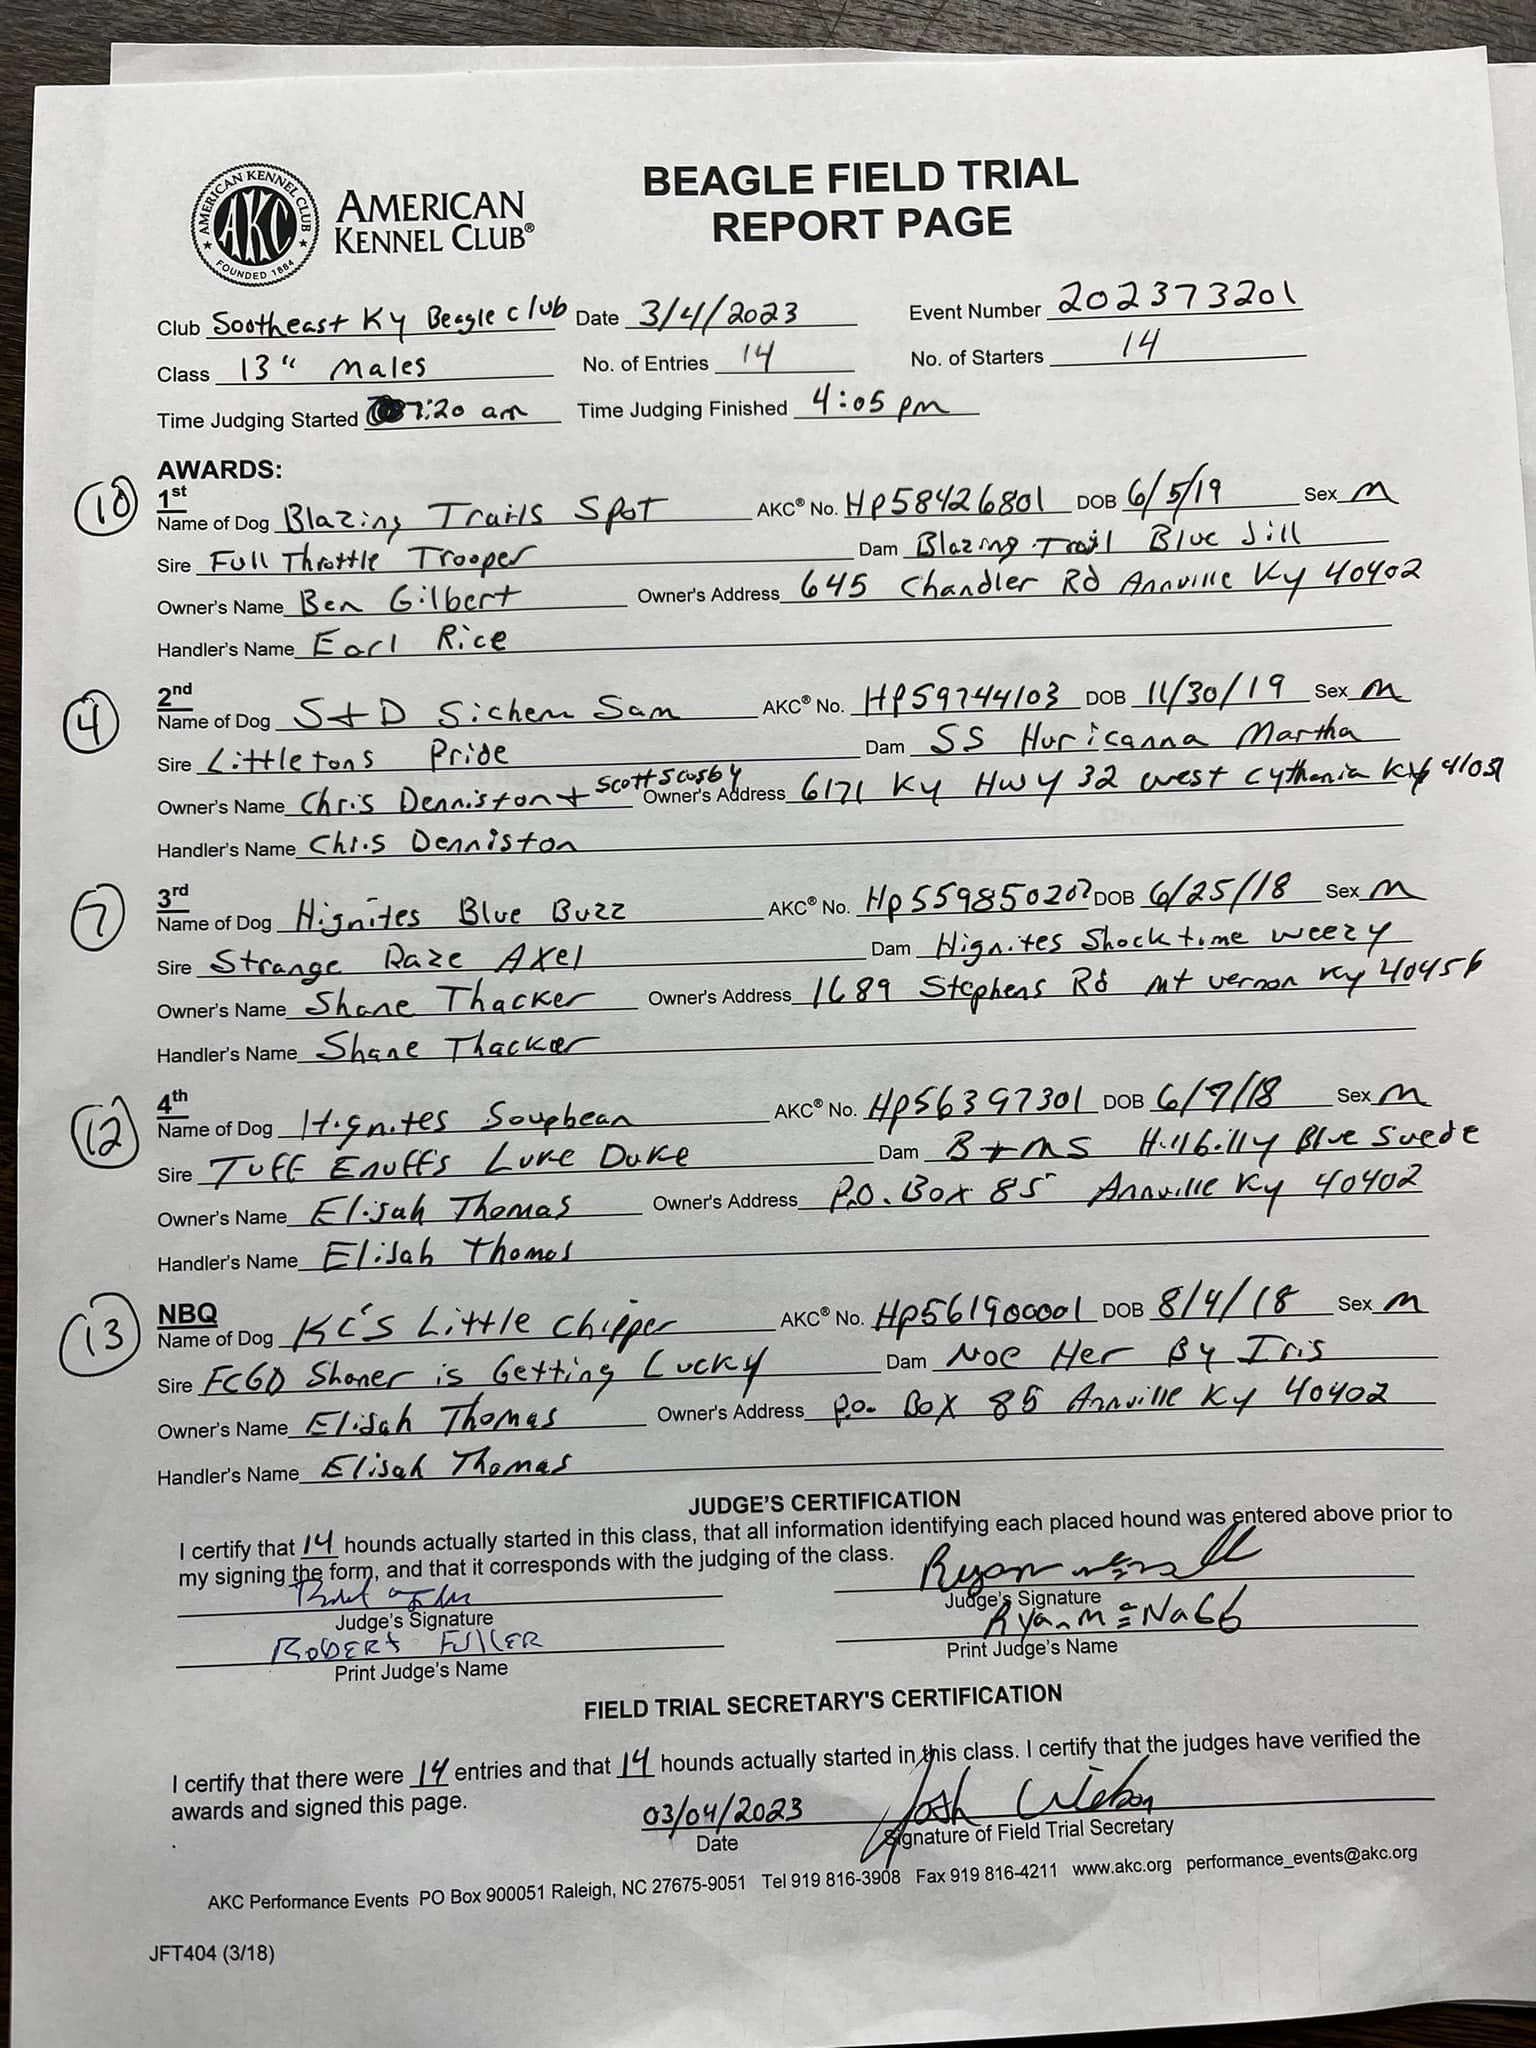 AMERICAN KENNEL CLUB
AKC
FOUNDED 1884
AMERICAN
KENNEL CLUB®
BEAGLE FIELD TRIAL
REPORT PAGE
Club Sootheast Ky Beagle club Date 3/4/2023 Event Number 202373201
Class 13" males No. of Entries 14 No. of Starters 14
Time Judging Started 7:20 am Time Judging Finished 4:05 pm
AWARDS:
10 1st
Name of Dog Blazing Trails Spot AKC® No. HP58426801 DOB 6/5/19 Sex M
Sire Full Throttle Trooper Dam Blazing Trail Blue Jill
Owner's Name Ben Gilbert Owner's Address 645 Chandler Rd Annville Ky 40402
Handler's Name Earl Rice
4 2nd
Name of Dog S+D Sichem Sam AKC® No. HP59744103 DOB 11/30/19 Sex M
Sire Littletons Pride Dam SS Huricanna Martha
Owner's Name Chris Denniston + Scott Scosby Owner's Address 6171 Ky Hwy 32 west Cythania Ky 41031
Handler's Name Chris Denniston
7 3rd
Name of Dog Hignites Blue Buzz AKC® No. HP559850202 DOB 6/25/18 Sex M
Sire Strange Daze Axel Dam Hignites Shocktime weezy
Owner's Name Shane Thacker Owner's Address 1689 Stephens Rd mt vernon Ky 40456
Handler's Name Shane Thacker
12 4th
Name of Dog Hignites Soupbean AKC® No. HP56397301 DOB 6/7/18 Sex M
Sire Tuff Enuff's Luke Duke Dam B+MS Hillbilly Blue Suede
Owner's Name Elijah Thomas Owner's Address P.O. Box 85 Annville Ky 40402
Handler's Name Elijah Thomas
13 NBQ
Name of Dog KC's Little Chipper AKC® No. HP561900001 DOB 8/4/18 Sex M
Sire FCGD Shaner is Getting Lucky Dam Noe Her By Iris
Owner's Name Elijah Thomas Owner's Address P.O. Box 85 Annville Ky 40402
Handler's Name Elijah Thomas
JUDGE'S CERTIFICATION
I certify that 14 hounds actually started in this class, that all information identifying each placed hound was entered above prior to
my signing the form, and that it corresponds with the judging of the class.
Judge's Signature Judge's Signature
Robert Fuller Ryan McNabb
Print Judge's Name Print Judge's Name
FIELD TRIAL SECRETARY'S CERTIFICATION
I certify that there were 14 entries and that 14 hounds actually started in this class. I certify that the judges have verified the
awards and signed this page.
03/04/2023 Josh
Date Signature of Field Trial Secretary
AKC Performance Events PO Box 900051 Raleigh, NC 27675-9051 Tel 919 816-3908 Fax 919 816-4211 www.akc.org performance_events@akc.org
JFT404 (3/18)